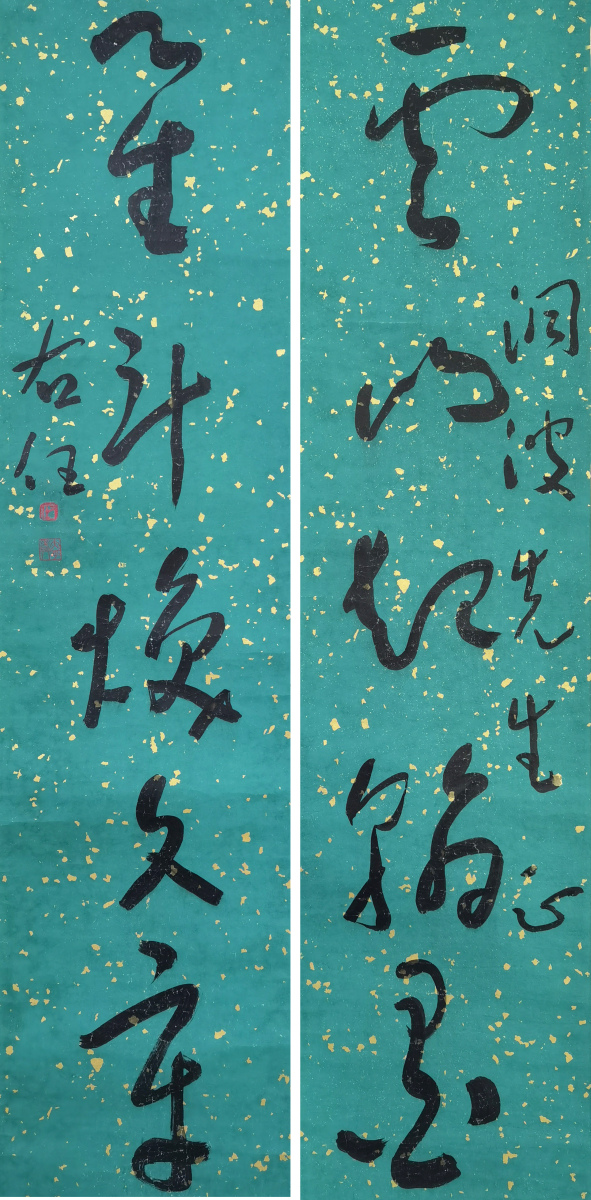 雲山起翰墨
洞波先生正
星斗煥文章
右任